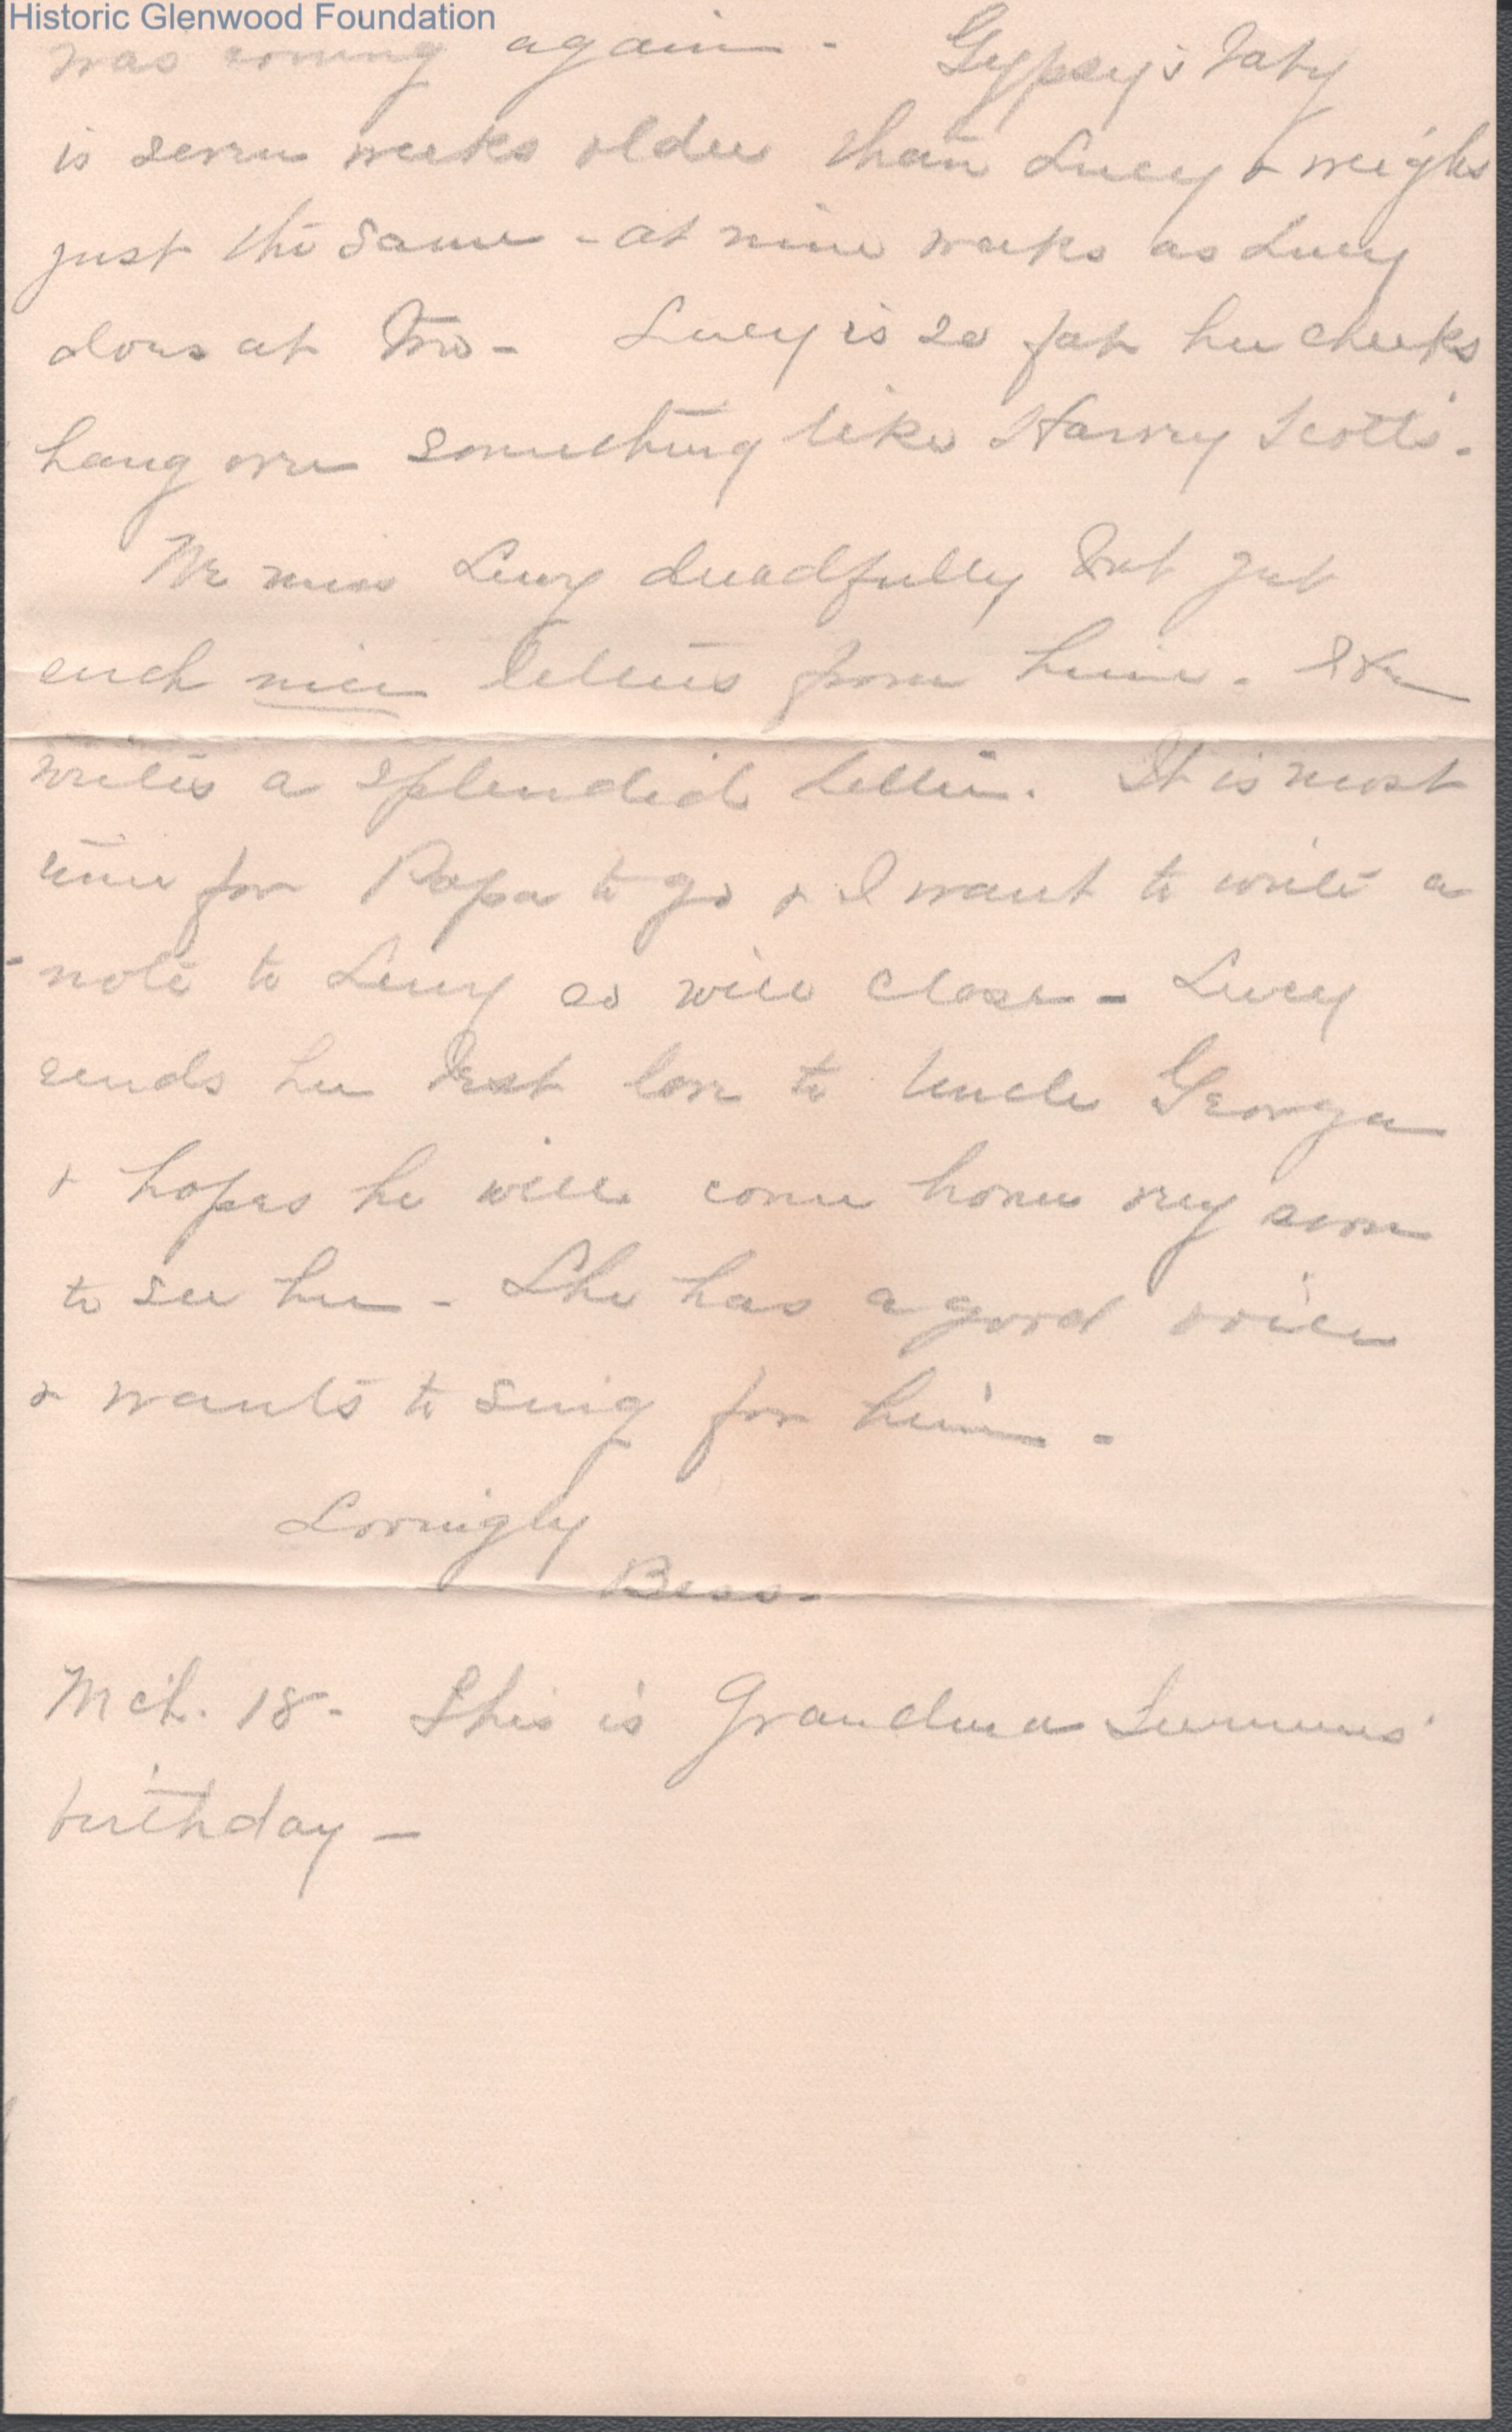 Historic Glenwood Foundation
was coming again - Gypsy's baby
is seven weeks older than Lucy & weighs
just the same - at nine weeks as Lucy
does at two - Lucy is so fat her cheeks
hang over something like Harry Scott's.
We miss Lucy dreadfully but get
such nice letters from him. He
writes a splendid letter. It is most
time for Papa to go & I want to write a
note to so will close - Lucy
sends her best love to Uncle George
& hopes he will come home very soon
to see her - She has a good voice
& wants to sing for him -
Lovingly
Bess -
Mch. 18 - This is Grandma
birthday -